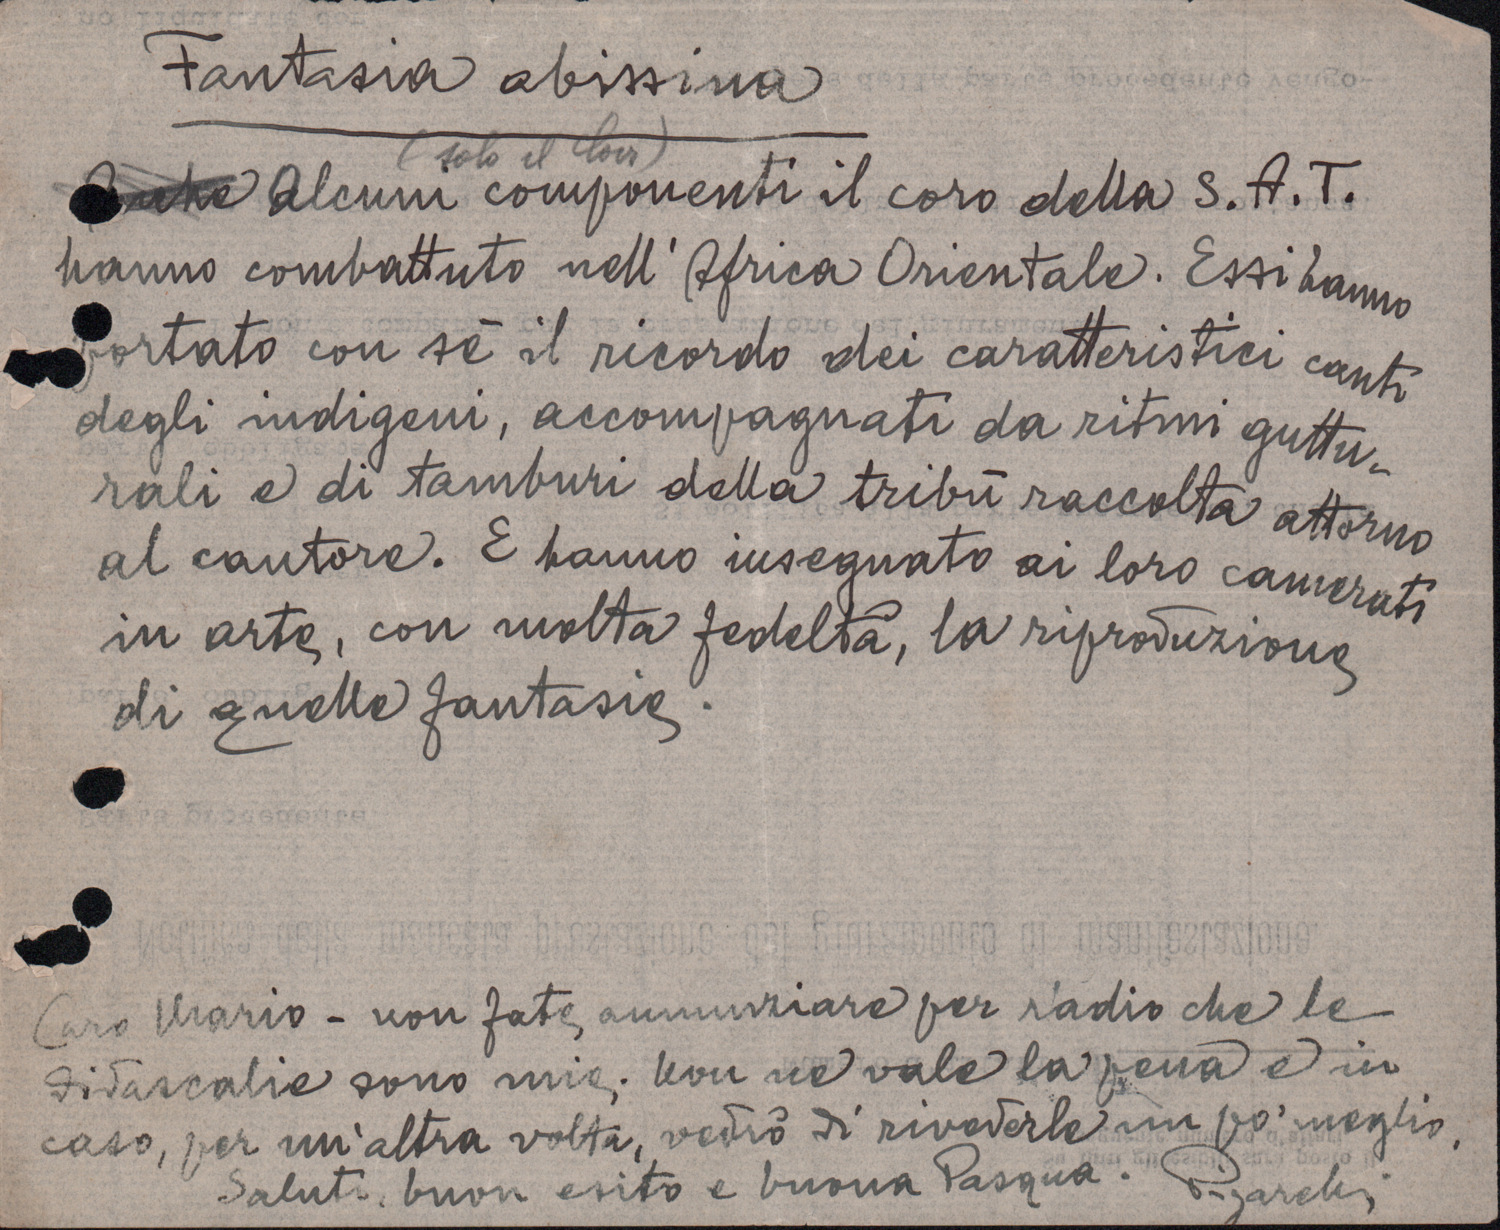 Fantasia abissina
(solo il
Alcuni componenti il coro della S.A.T.
hanno combattuto nell'Africa Orientale. Essi hanno
portato con sé il ricordo dei caratteristici canti
degli indigeni, accompagnati da ritmi guttu-
rali e di tamburi della tribù raccolta attorno
al cantore. E hanno insegnato ai loro camerati
in arte, con molta fedeltà, la riproduzione
di quelle fantasie.
Caro Mario - non fate annunziare per radio che le
didascalie sono mie. Non ne vale la pena e in
caso, per un'altra volta, vedrò di rivederle un po' meglio.
Saluti, buon esito e buona Pasqua.